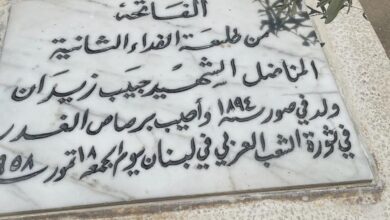 الفاتحة
من طليعة الفداء الثانية
المناضل الشهيد جبيب زيدان
ولد في صور سنة ١٨٩٤ وأصيب برصاص الغدر
في ثورة الشعب العربي في لبنان يوم الجمعه ١٨ تموز ١٩٥٨